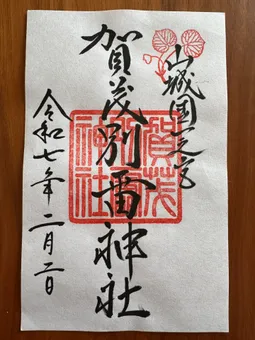 山城国一之宮
賀茂別雷神社
令和七年二月二日
賀茂
神社